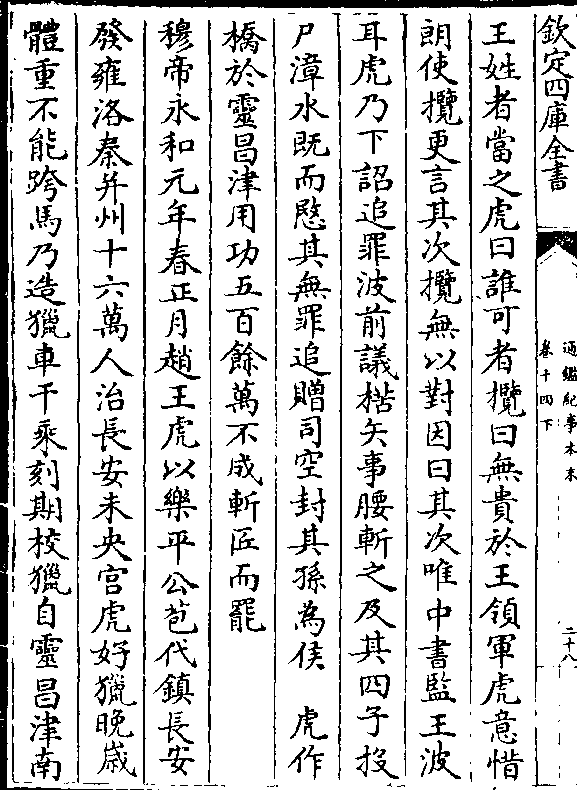 欽定四庫全書
通鑑紀事本末
卷十四下
二十八
王姓者當之虎曰誰可者攬曰無貴於王領軍虎意惜
朗使攬更言其次攬無以對因曰其次唯中書監王波
耳虎乃下詔追罪波前議楛矢事腰斬之及其四子投
尸漳水既而愍其無罪追贈司空封其孫為侯　虎作
橋於靈昌津用功五百餘萬不成斬匠而罷
穆帝永和元年春正月趙王虎以樂平公苞代鎮長安
發雍洛秦并州十六萬人治長安未央宫虎好獵晚歳
體重不能跨馬乃造獵車千乘刻期校獵自靈昌津南